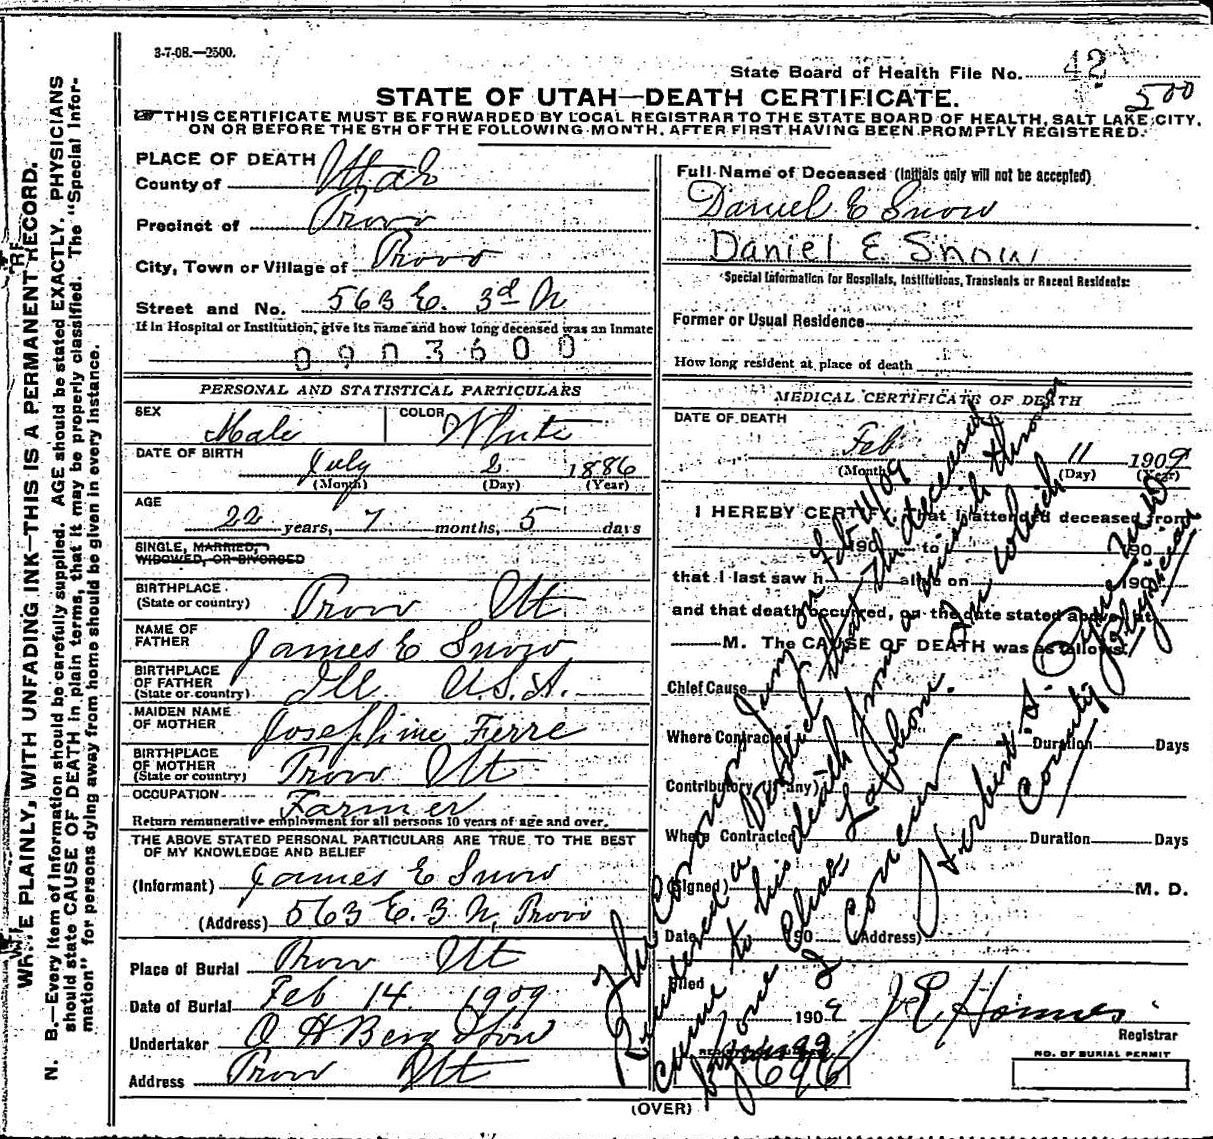 3-7-08.—2500.
State Board of Health File No. 42
500
STATE OF UTAH—DEATH CERTIFICATE.
THIS CERTIFICATE MUST BE FORWARDED BY LOCAL REGISTRAR TO THE STATE BOARD OF HEALTH, SALT LAKE CITY,
ON OR BEFORE THE 5TH OF THE FOLLOWING MONTH, AFTER FIRST HAVING BEEN PROMPTLY REGISTERED.
WRITE PLAINLY, WITH UNFADING INK—THIS IS A PERMANENT RECORD.
N. B.—Every item of Information should be carefully supplied. AGE should be stated EXACTLY. PHYSICIANS
should state CAUSE OF DEATH in plain terms, that it may be properly classified. The "Special Infor-
mation" for persons dying away from home should be given in every instance.
PLACE OF DEATH
County of Utah
Precinct of Provo
City, Town or Village of Provo
Street and No. 563 E. 3rd N
If in Hospital or Institution, give its name and how long deceased was an Inmate
0903600
PERSONAL AND STATISTICAL PARTICULARS
SEX Male COLOR White
DATE OF BIRTH July 2 1886
(Month) (Day) (Year)
AGE
22 years, 7 months, 5 days
SINGLE, MARRIED,
WIDOWED, OR DIVORCED
BIRTHPLACE
(State or country) Provo Ut
NAME OF
FATHER James E Snow
BIRTHPLACE
OF FATHER
(State or country) Ill. U.S.A.
MAIDEN NAME
OF MOTHER Josephine Ferre
BIRTHPLACE
OF MOTHER
(State or country) Provo Ut
OCCUPATION Farmer
Return remunerative employment for all persons 10 years of age and over.
THE ABOVE STATED PERSONAL PARTICULARS ARE TRUE TO THE BEST
OF MY KNOWLEDGE AND BELIEF
(Informant) James E Snow
(Address) 563 E. 3 N, Provo
Place of Burial Provo Ut
Date of Burial Feb 14 1909
Undertaker O H Berg & Son
Address Provo Ut
Full Name of Deceased (Initials only will not be accepted)
Daniel E Snow
Daniel E. Snow
Special Information for Hospitals, Institutions, Transients or Recent Residents:
Former or Usual Residence
How long resident at place of death
MEDICAL CERTIFICATE OF DEATH
DATE OF DEATH
Feb 11 1909
(Month) (Day) (Year)
I HEREBY CERTIFY, That I attended deceased from
190 to 190
that I last saw h alive on 190
and that death occurred, on the date stated above, at
M. The CAUSE OF DEATH was as follows:
Chief Cause
Where Contracted Duration Days
Contributory (if any)
Where Contracted Duration Days
(Signed) M. D.
Date 190 (Address)
The Coroners Jury on Feb 11/09
Rendered a verdict that the deceased
came to his death from a missile thrown
by one Chas Loftson. In which
I Concur
Herbert S. Pyne M.D.
County Physician
Filed
1909 J E Homes
Registrar
696
NO. OF BURIAL PERMIT
(OVER)